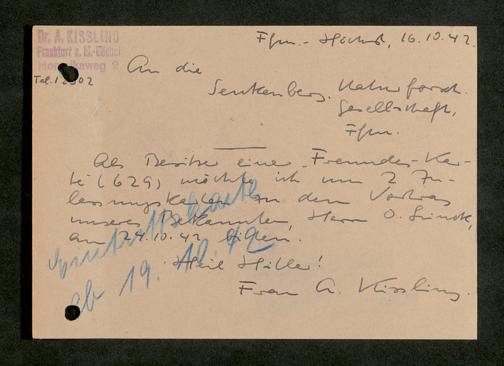 Dr. A. KISSLING
Frankfurt a. M.-Höchst
Tel. 12302
Ffm.-Höchst, 16.10.42.
An die
Senkenberg. Naturforsch.
Gesellschaft,
Ffm.
Als Besitzer einer „Freundes-Kar-
te (629) möchte ich um 2 Zu-
lassungskarten zu dem Vortrag
unseres Bekannten, Herrn O.
am 24.10.42 bitten.
Heil Hitler!
Frau A. Kissling.
Eintrittskarte
ab 19. 10. 42